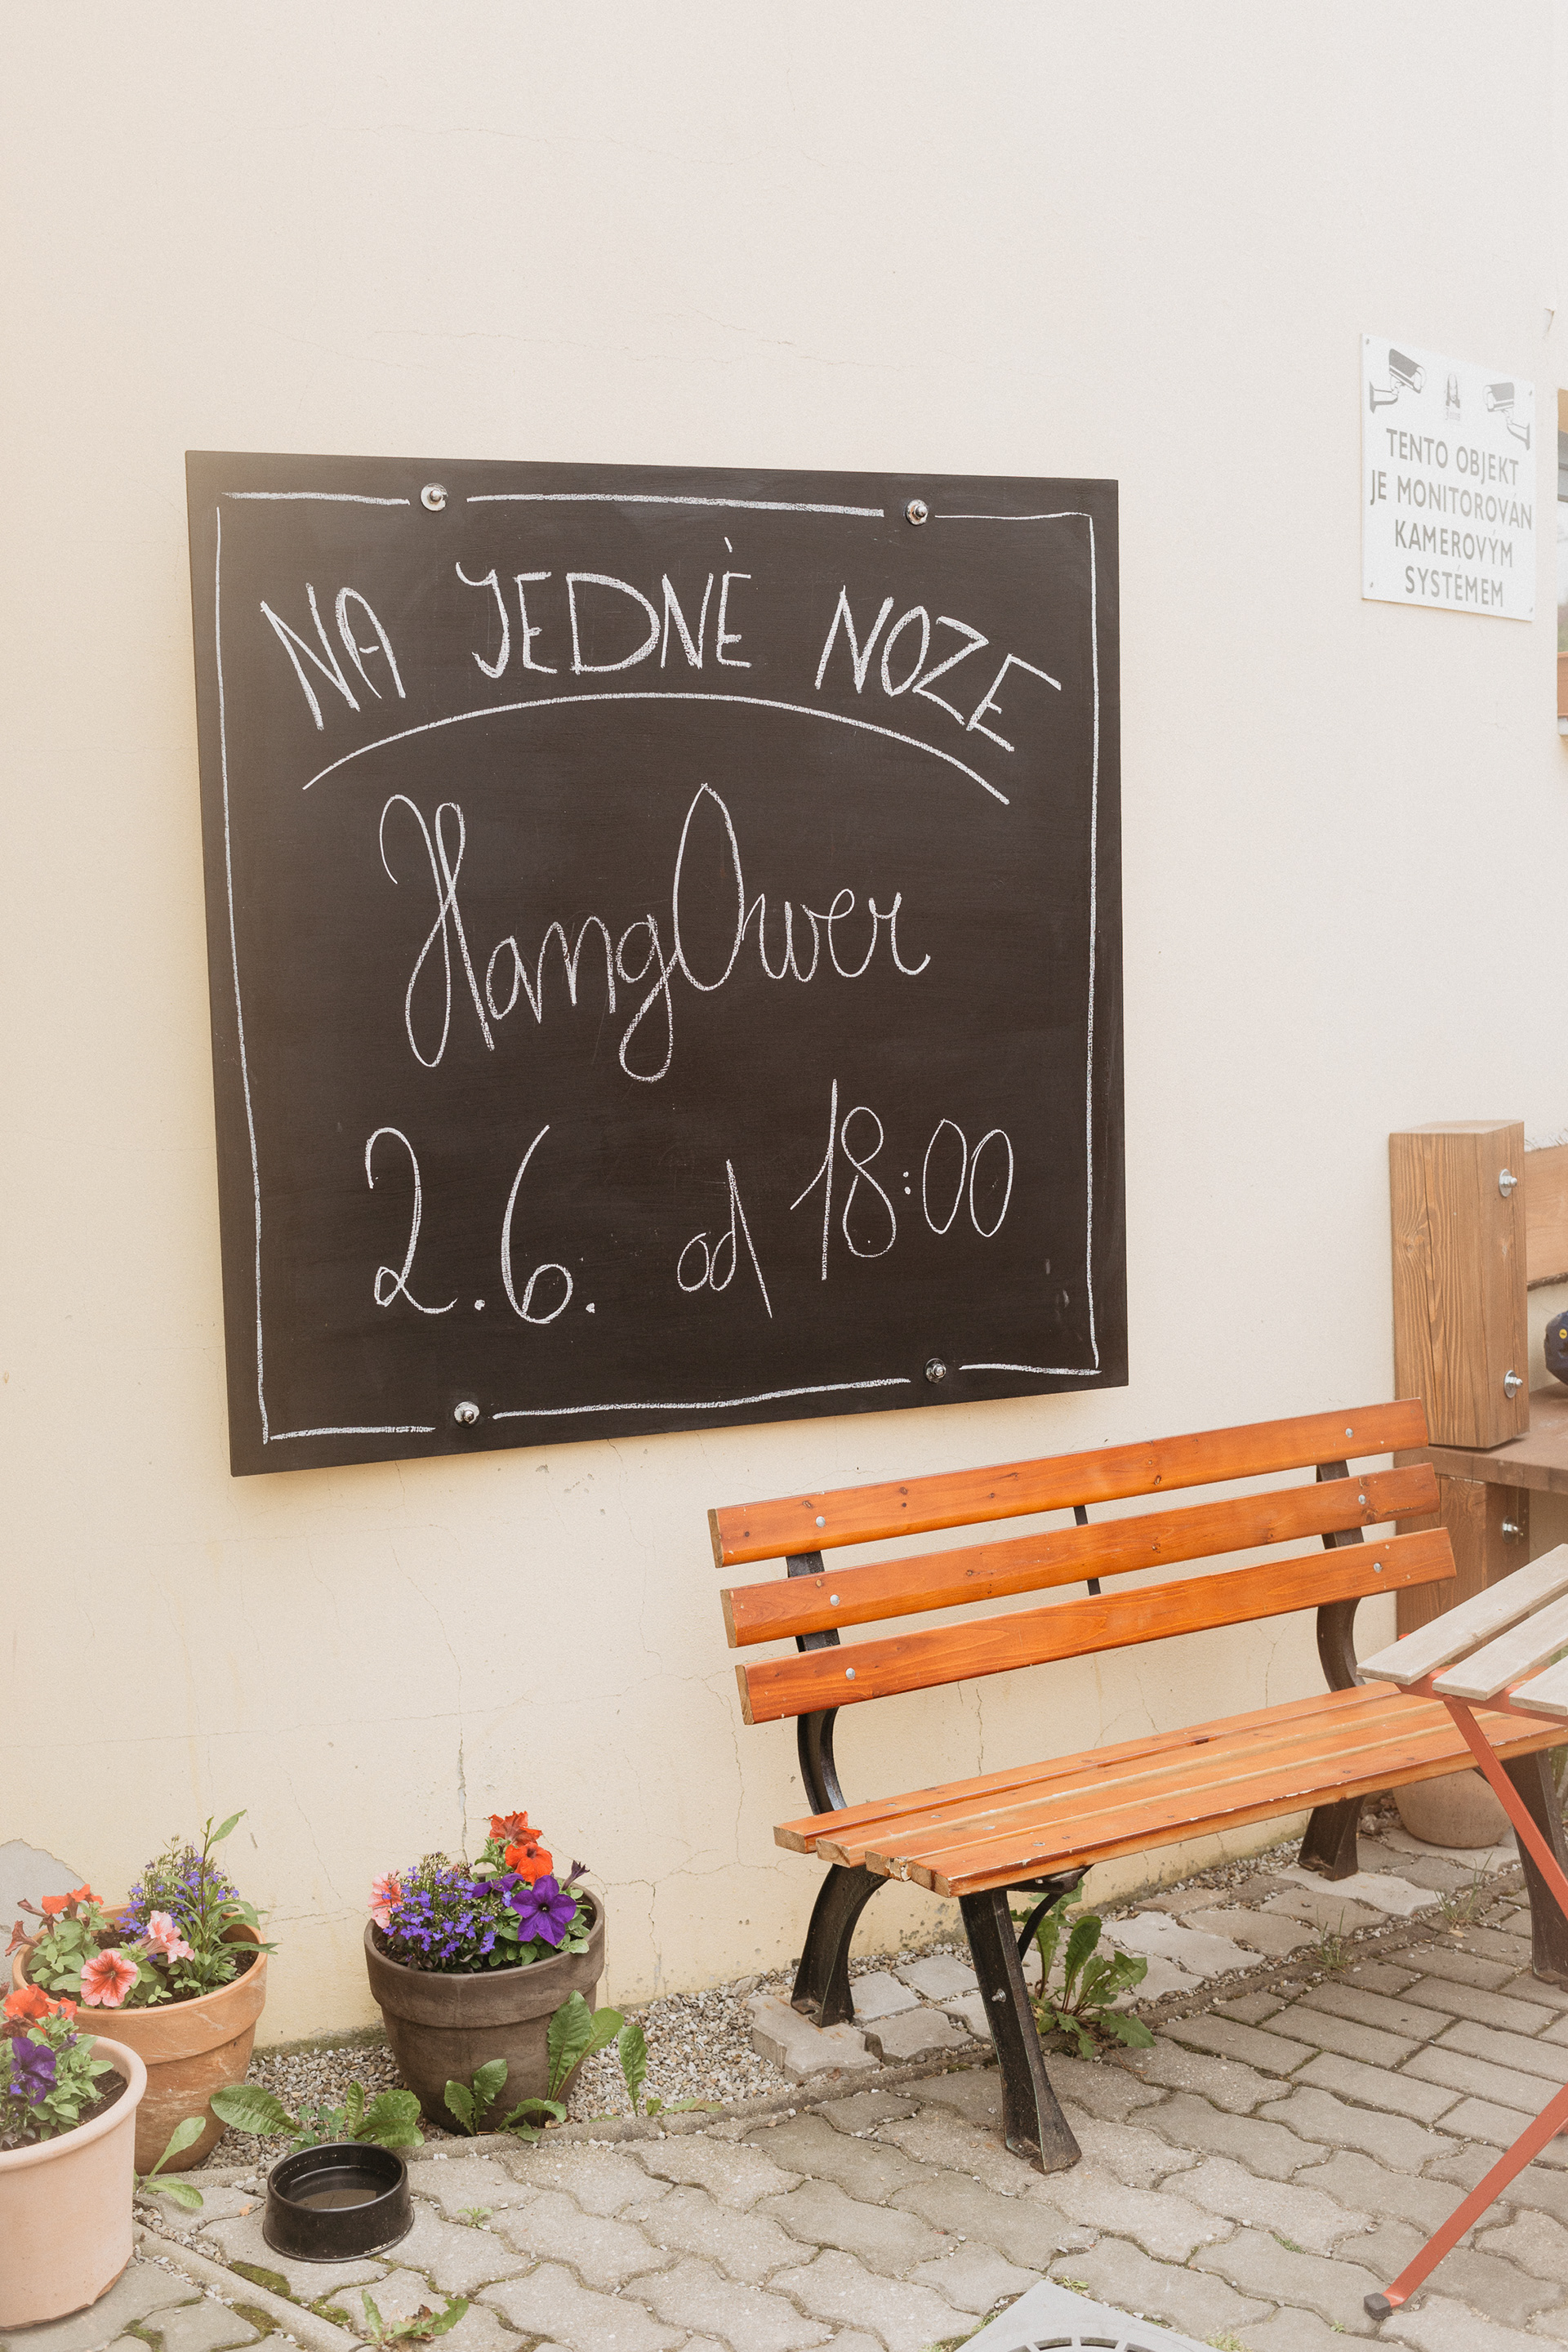 NA JEDNÉ NOZE
HangOwer
2.6. od 18:00
TENTO OBJEKT
JE MONITOROVÁN
KAMEROVÝM
SYSTÉMEM